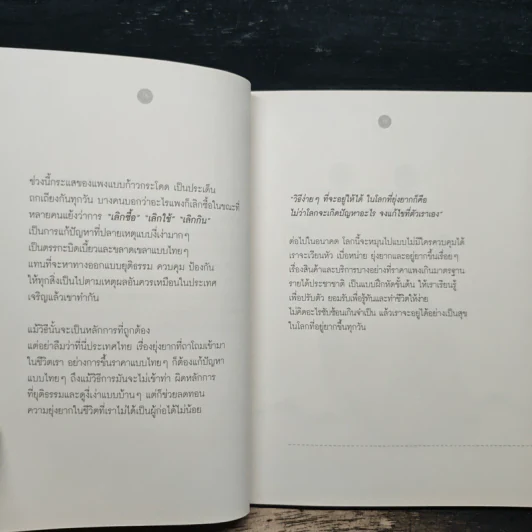 ช่วงนี้กระแสของแพงแบบก้าวกระโดด เป็นประเด็น
ถกเถียงกันทุกวัน บางคนบอกว่าอะไรแพงก็เลิกซื้อในขณะที่
หลายคนแย้งว่าการ "เลิกซื้อ" "เลิกใช้" "เลิกกิน"
เป็นการแก้ปัญหาที่ปลายเหตุแบบงี่เง่ามากๆ
เป็นตรรกะบิดเบี้ยวและขลาดเขลาแบบไทยๆ
แทนที่จะหาทางออกแบบยุติธรรม ควบคุม ป้องกัน
ให้ทุกสิ่งเป็นไปตามเหตุผลอันควรเหมือนในประเทศ
เจริญแล้วเขาทำกัน
แม้วิธีนั้นจะเป็นหลักการที่ถูกต้อง
แต่อย่าลืมว่าที่นี่ประเทศไทย เรื่องยุ่งยากที่ถาโถมเข้ามา
ในชีวิตเรา อย่างการขึ้นราคาแบบไทยๆ ก็ต้องแก้ปัญหา
แบบไทยๆ ถึงแม้วิธีการมันจะไม่เข้าท่า ผิดหลักการ
ที่ยุติธรรมและดูงี่เง่าแบบบ้านๆ แต่ก็ช่วยลดทอน
ความยุ่งยากในชีวิตที่เราไม่ได้เป็นผู้ก่อได้ไม่น้อย
"วิธีง่ายๆ ที่จะอยู่ให้ได้ ในโลกที่ยุ่งยากก็คือ
ไม่ว่าโลกจะเกิดปัญหาอะไร จงแก้ไขที่ตัวเราเอง"
ต่อไปในอนาคต โลกนี้จะหมุนไปแบบไม่มีใครควบคุมได้
เราจะเวียนหัว เบื่อหน่าย ยุ่งยากและอยู่ยากขึ้นเรื่อยๆ
เรื่องสินค้าและบริการบางอย่างที่ราคาแพงเกินมาตรฐาน
รายได้ประชาชาติ เป็นแบบฝึกหัดชั้นต้น ให้เราเรียนรู้
เพื่อปรับตัว ยอมรับเพื่อรู้ทันและทำชีวิตให้ง่าย
ไม่คิดอะไรซับซ้อนเกินจำเป็น แล้วเราจะอยู่ได้อย่างเป็นสุข
ในโลกที่อยู่ยากขึ้นทุกวัน